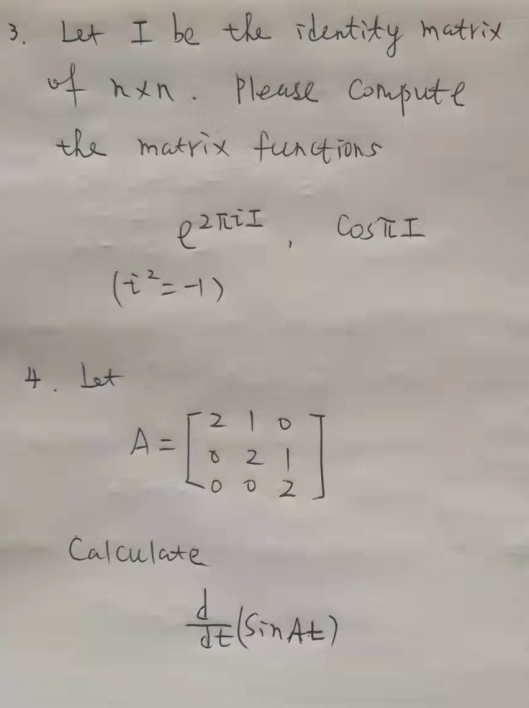 3. Let I be the identity matrix
of n×n. Please compute
the matrix functions
e^{2πiI}, Cos πI
(i²=-1)
4. Let
A = [2 1 0
0 2 1
0 0 2]
Calculate
d/dt (Sin At)